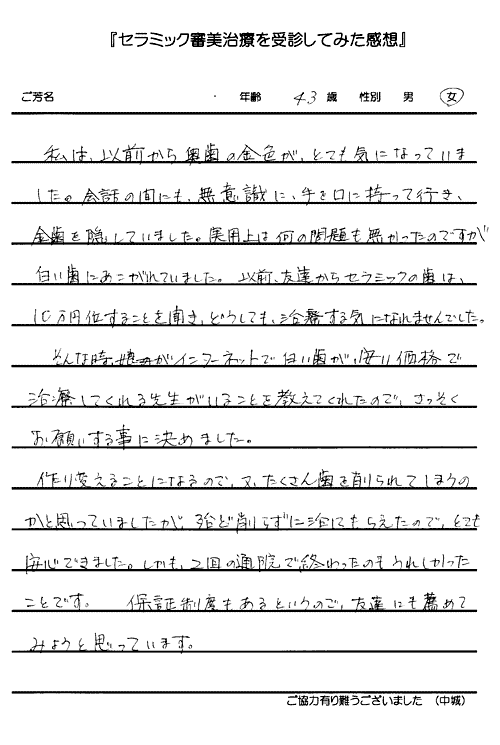 『セラミック審美治療を受診してみた感想』
ご芳名 年齢 43 歳 性別 男 女
私は、以前から奥歯の金色が、とても気になっていま
した。会話の間にも、無意識に、手を口に持って行き、
金歯を隠していました。実用上は何の問題も無かったのですが
白い歯にあこがれていました。以前、友達からセラミックの歯は、
10万円位することを聞き、どうしても、治療する気になれませんでした。
そんな時、娘がインターネットで白い歯が、安い価格で
治療してくれる先生がいることを教えてくれたので、さっそく
お願いする事に決めました。
作り変えることになるので、又、たくさん歯を削られてしまうの
かと思っていましたが、殆ど削らずに治してもらえたので、とても
安心できました。しかも、2回の通院で終わったのもうれしかった
ことです。 保証制度もあるというので、友達にも薦めて
みようと思っています。
ご協力有り難うございました (中城)